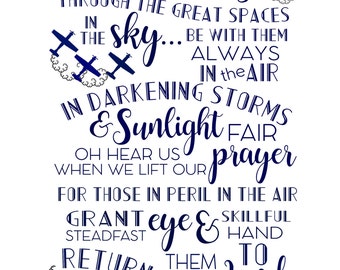 THROUGH THE GREAT SPACES
IN THE sky... BE WITH THEM
ALWAYS
IN the AIR
IN DARKENING STORMS
& Sunlight FAIR
OH HEAR US
WHEN WE LIFT OUR prayer
FOR THOSE IN PERIL IN THE AIR
GRANT STEADFAST eye & SKILLFUL HAND
RETURN THEM TO